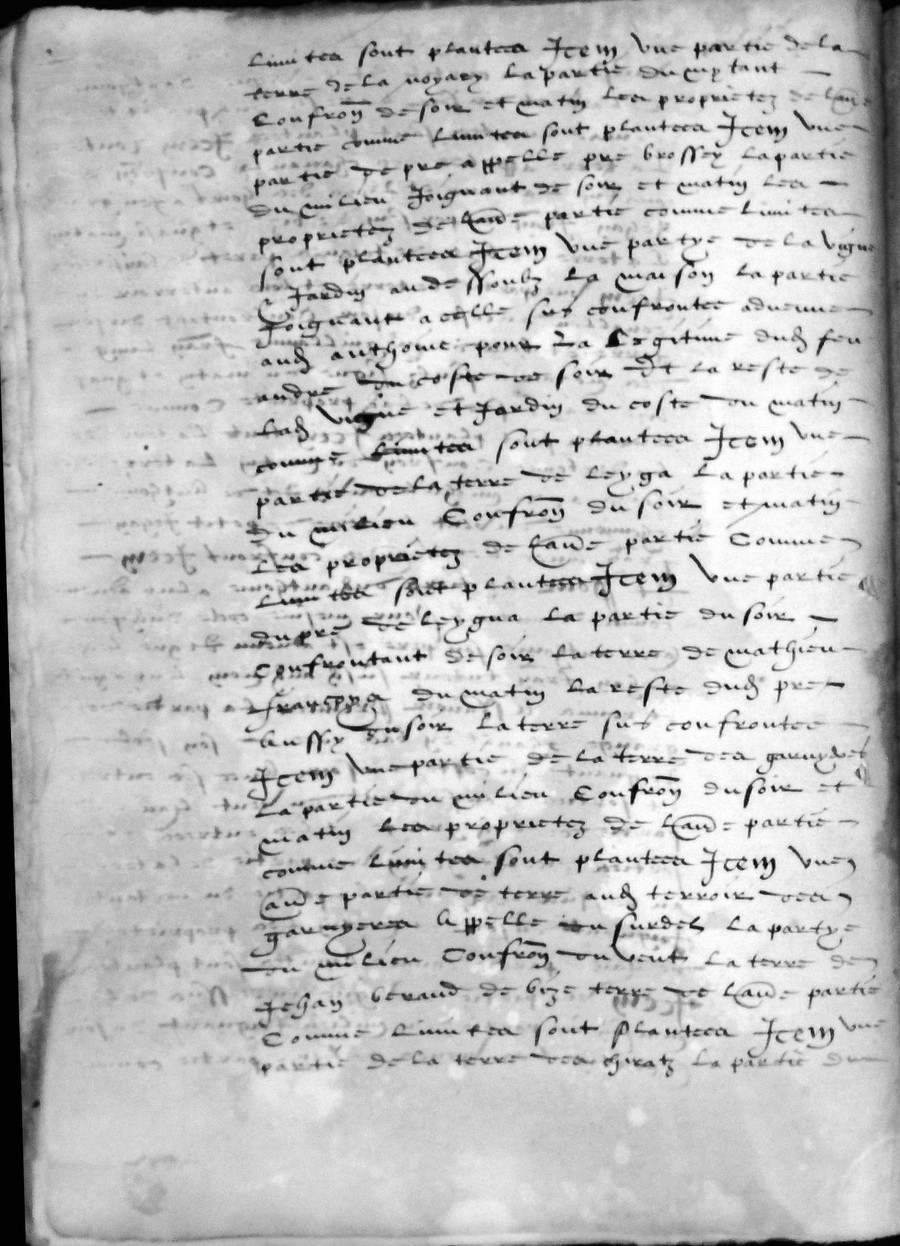 limites sont plantees Item vne partie de la
terre de la noyary la partie du
Confron de soir et matin les proprietez de laue
partie comme limites sont plantees Item vne
partie de pre appelle pre brossey la partie
du milieu Joignant de soir et matin les
proprietez de laue partie comme limites
sont plantees Item vne partye de la vigne
& Jardin au dessoubz la maison la partie
Joignant a celle sus confrontee aduenue
aud anthoine pour la legitime dud feu
andre du coste de soir Et la reste de
lad vigne et Jardin du coste du matin
comme limites sont plantees Item vne
partie de la terre de leyga la partie
du milieu Confron du soir et matin
les proprietez de laue partie Comme
limites sont plantees Item vne partie
du pre de leygua la partie du soir
Confrontant de soir la terre de mathieu
francoys du matin la reste dud pre
aussy du soir la terre sus confrontee
Item vne partie de la terre des garnyeres
la partie du milieu Confron du soir et
matin les proprietez de laue partie
comme limites sont plantees Item vne
aue partie de terre aud terroir des
garnyeres appelle du surdel la partye
du milieu Confron du vent la terre de
Jehan beraud de bize terre de laue partie
Comme limites sont plantees Item vne
partie de la terre des chiratz la partie du